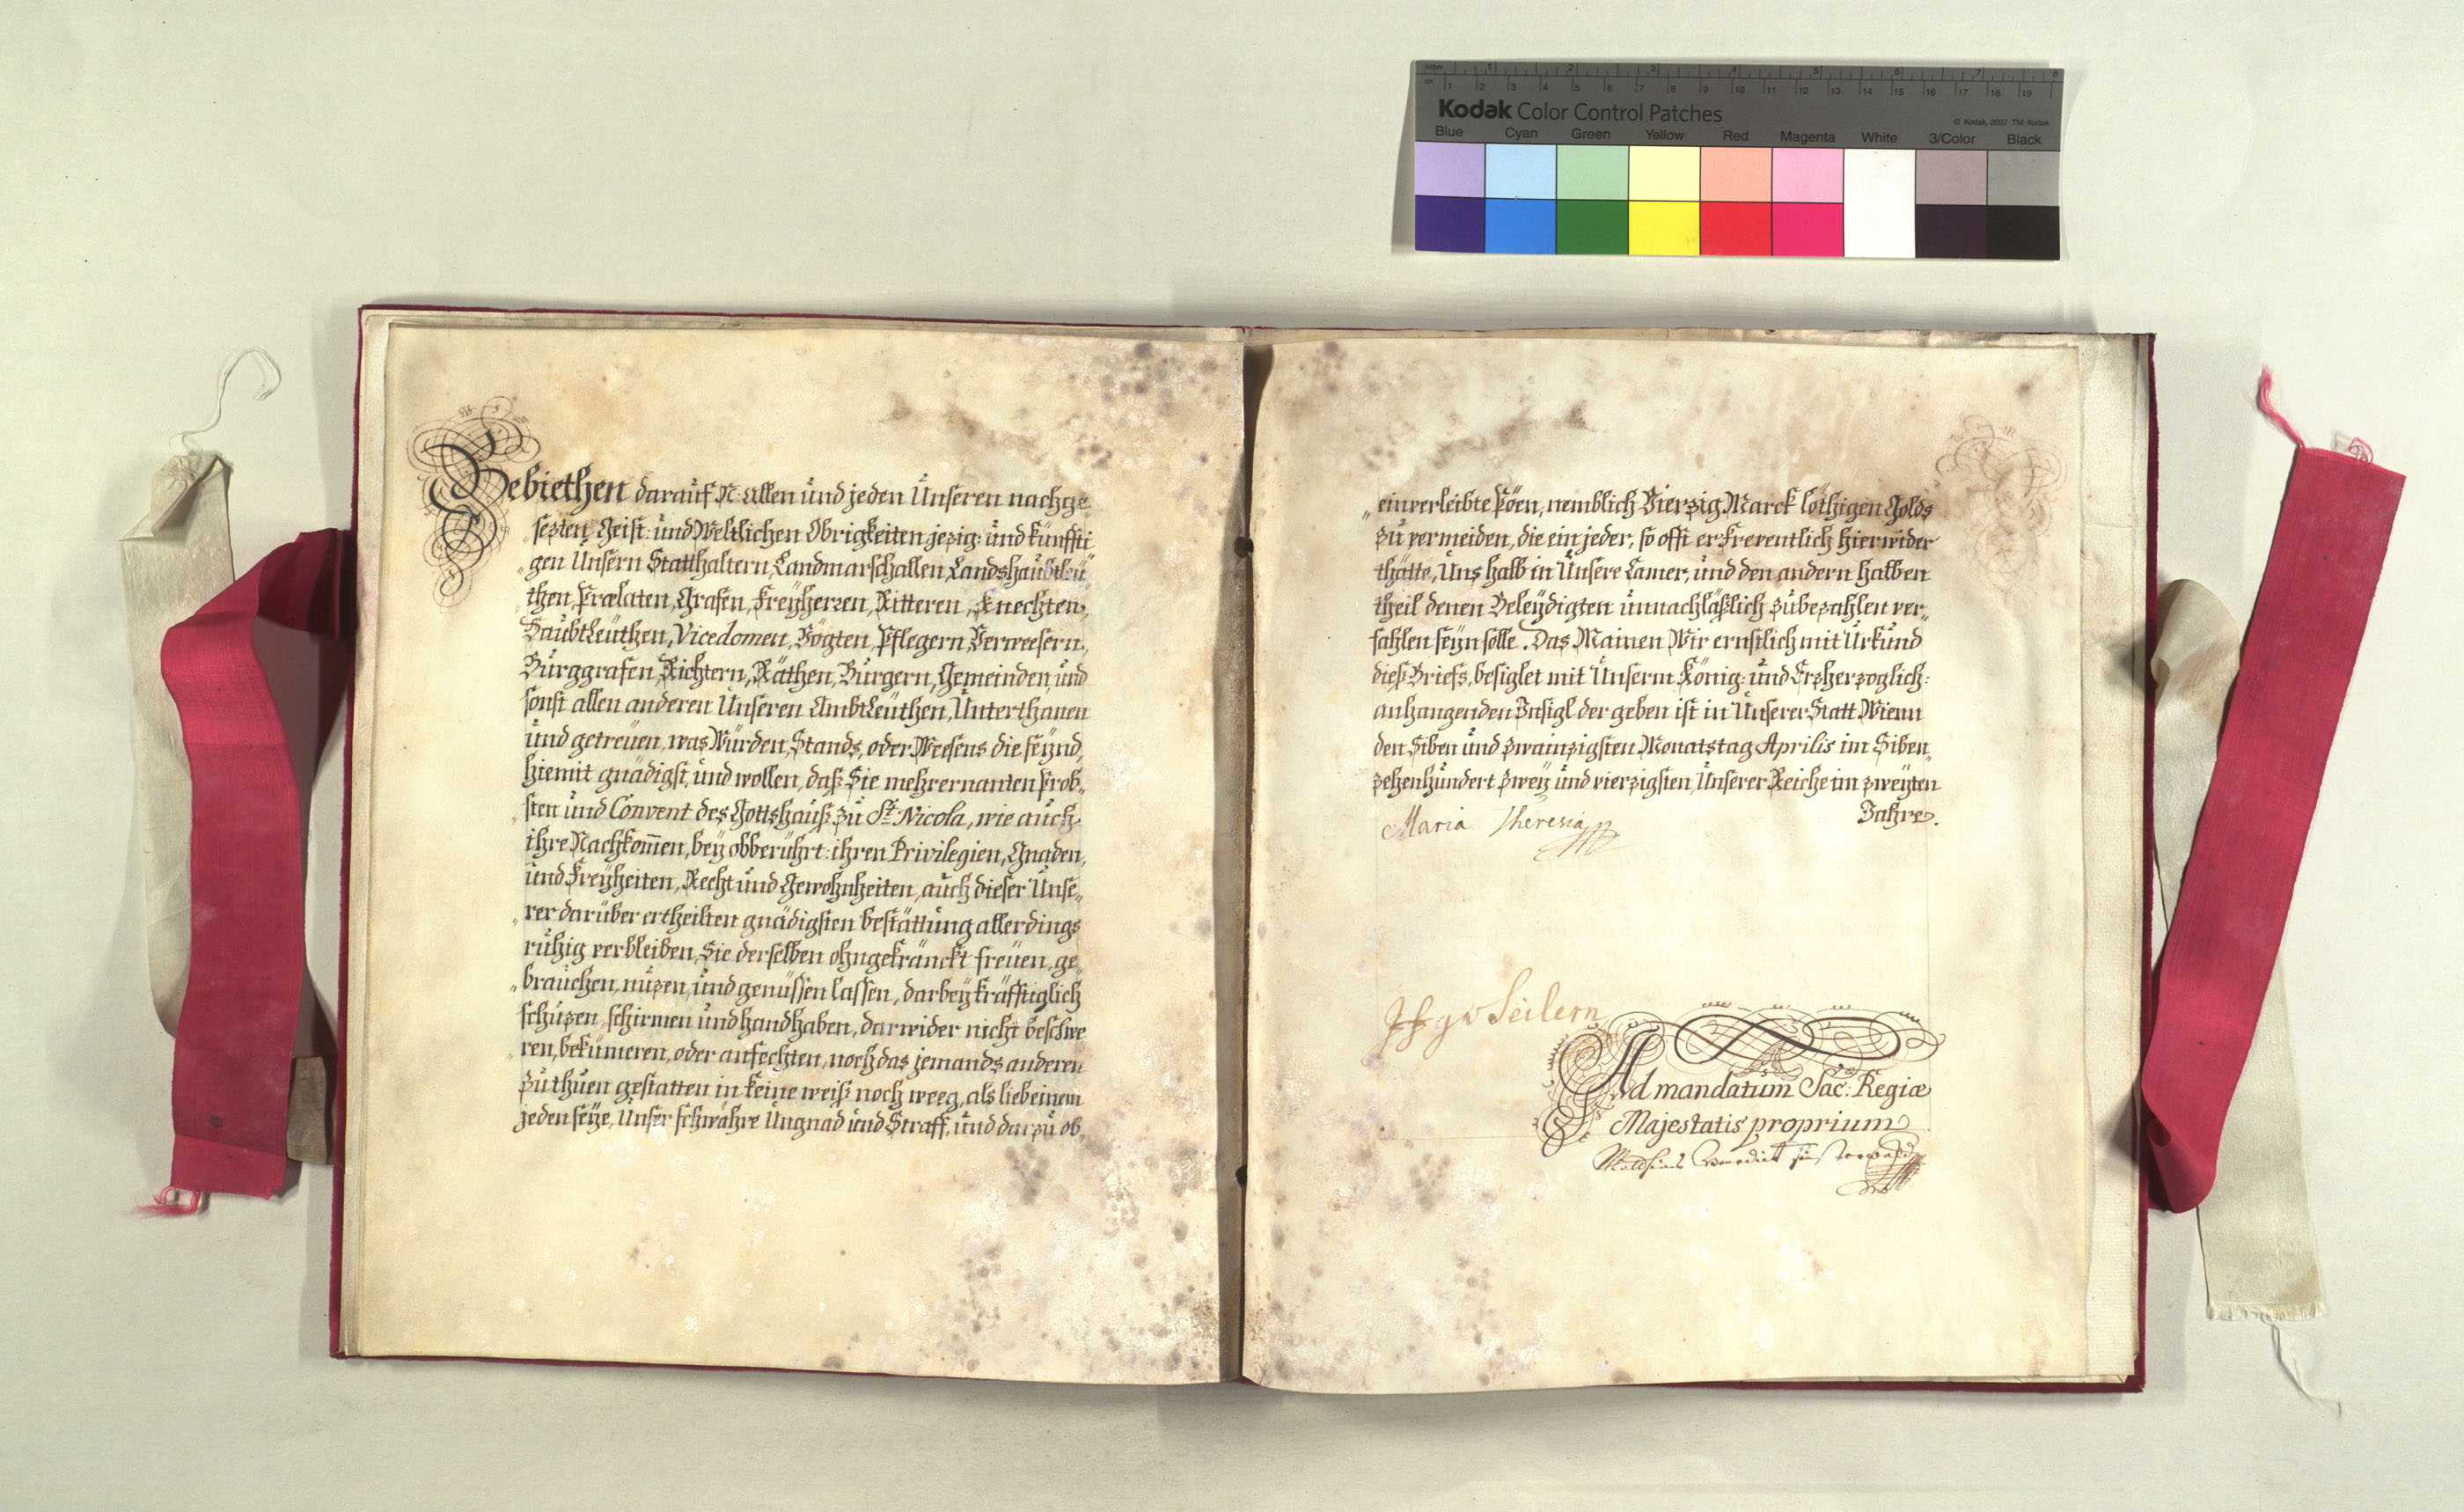 Kodak Color Control Patches
© Kodak, 2007 TM: Kodak
Blue Cyan Green Yellow Red Magenta White 3/Color Black
Gebiethen darauf N: allen und jeden Unseren nachge„
„sezten Geist: und Weltlichen Obrigkeiten jezig: und künffti
„gen Unsern Statthaltern, Landmarschallen, Landshaubtleü„
then, Prælaten, Grafen, Freÿherren, Ritteren, Knechten,
Haubtleüthen, Vicedomen, Vögten, Pflegern, Verweesern,
Burggrafen, Richtern, Räthen, Burgern, Gemeinden, und
sonst allen anderen Unseren Ambtleüthen, Unterthanen
und getreüen, was Würden, Stands, oder Weesens die seÿnd,
hiemit gnädigst, und wollen, daß Sie mehrernanten Prob„
„sten und Convent des Gottshauß zu St. Nicola, wie auch
ihre Nachkom̄en, beÿ obberührt: ihren Privilegien, Gnaden,
und Freÿheiten, Recht und Gewohnheiten, auch dieser Unse„
„rer darüber ertheilten gnädigsten bestättung allerdings
ruhig verbleiben, Sie derselben ohngekränckt freüen, ge„
„brauchen, nuzen, und genüssen lassen, darbeÿ kräfftiglich
schüzen, schirmen und handhaben, darwider nicht beschwe
„ren, beküm̄eren, oder anfechten, noch das jemands anderen
zu thuen gestatten in keine weiß noch weeg, als lieb einem
jeden seÿe, Unser schwähre Ungnad und Straff, und darzu ob„
„einverleibte Pöen, nemblich Vierzig Marck löthigen Golds
zu vermeiden, die ein jeder, so offt er freventlich hierwider
thätte, Uns halb in Unsere Camer, und den andern halben
theil denen Beleÿdigten unnachläßlich zu bezahlen ver„
fahlen seÿn solle. Das Mainen Wir ernstlich mit Urkund
dieß Briefs, besiglet mit Unserm König: und Erzherzoglich:
anhangenden Insigl der geben ist in Unserer Statt Wienn
den Siben und zwainzigsten Monatstag Aprilis im Siben„
zehenhundert zweÿ und vierzigsten, Unserer Reiche im zweÿten
Jahre.
Maria Theresia
Seilern
Ad mandatum Sac: Regiæ
Majestatis proprium